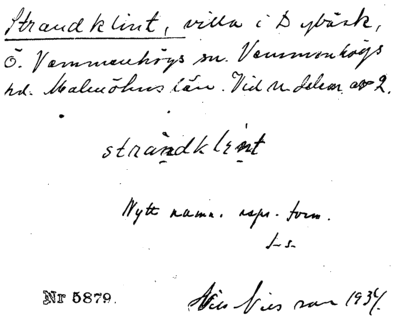 Strandklint, villa i Dybäck,
Ö. Vemmenhögs sn. Vemmenhögs
hd. Malmöhus län. Vid n. delen av 2.
strandklint
Nytt namn. rspr. form.
Nr 5879.
1934.